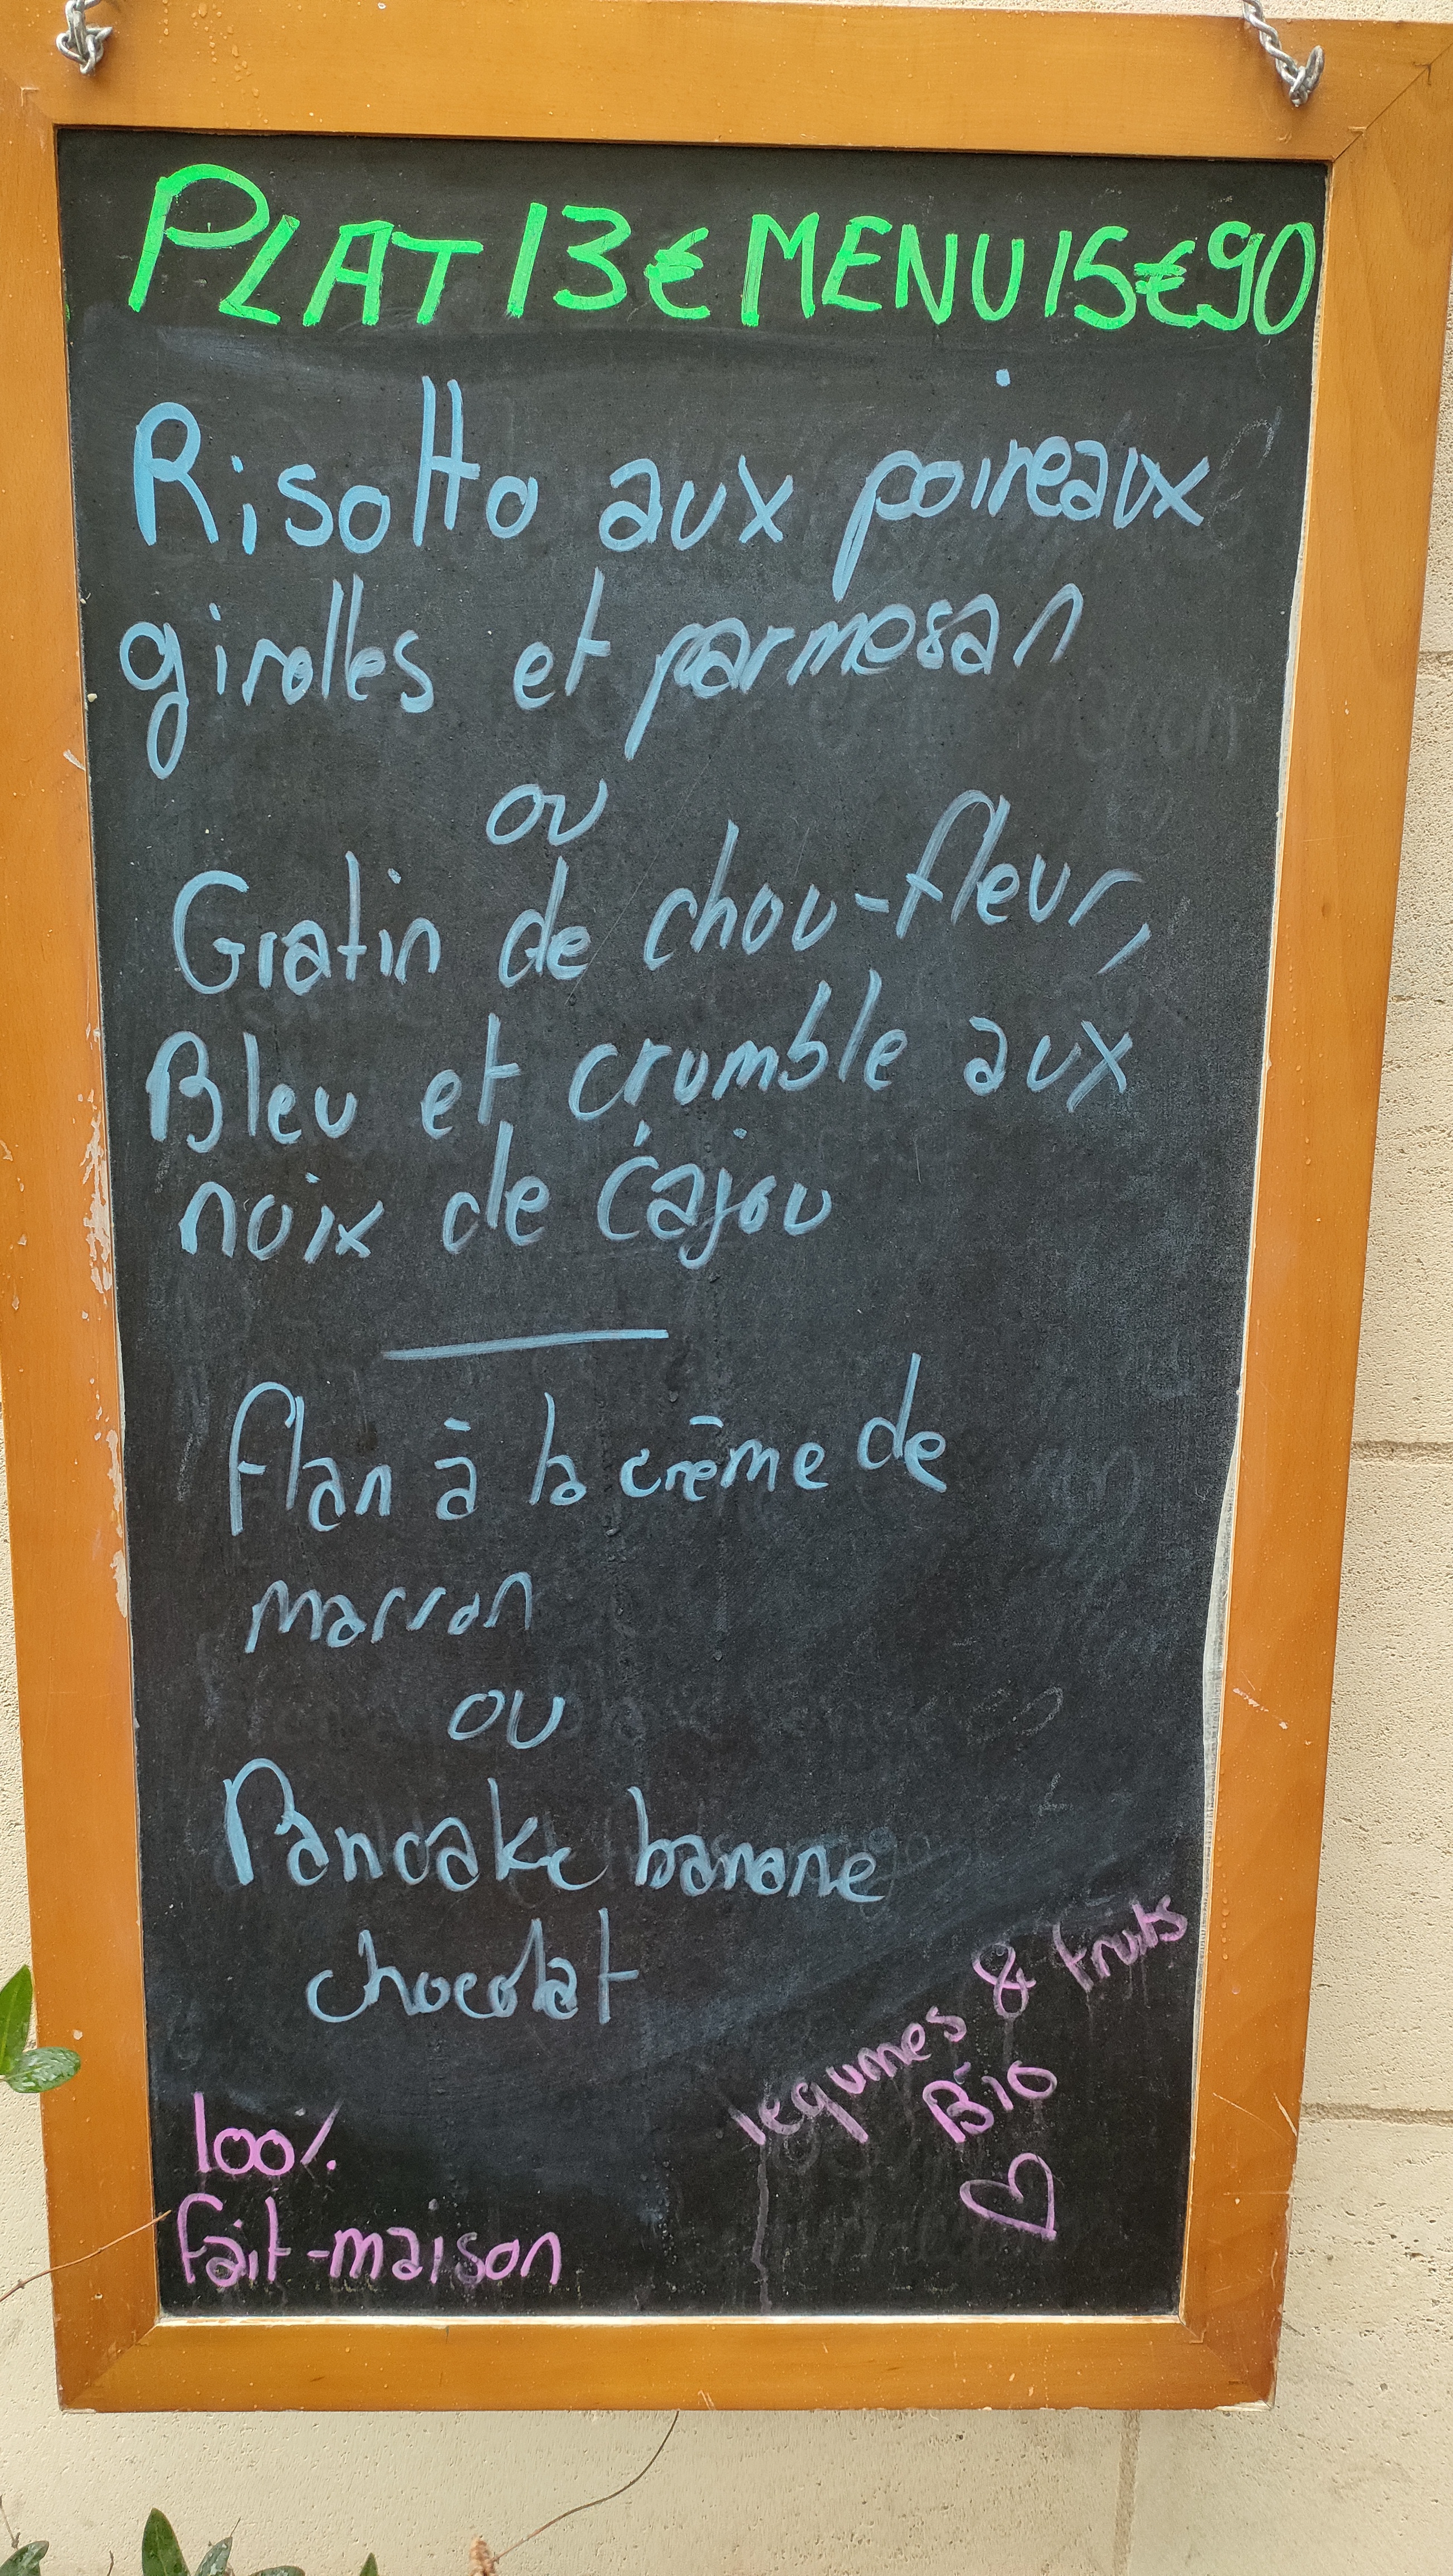 PLAT 13€ MENU 15€90
Risotto aux poireaux
girolles et parmesan
ou
Gratin de chou-fleur,
Bleu et crumble aux
noix de cajou
Flan à la crème de
marron
ou
Pancake banane
chocolat
légumes & fruits
Bio
100%
Fait-maison